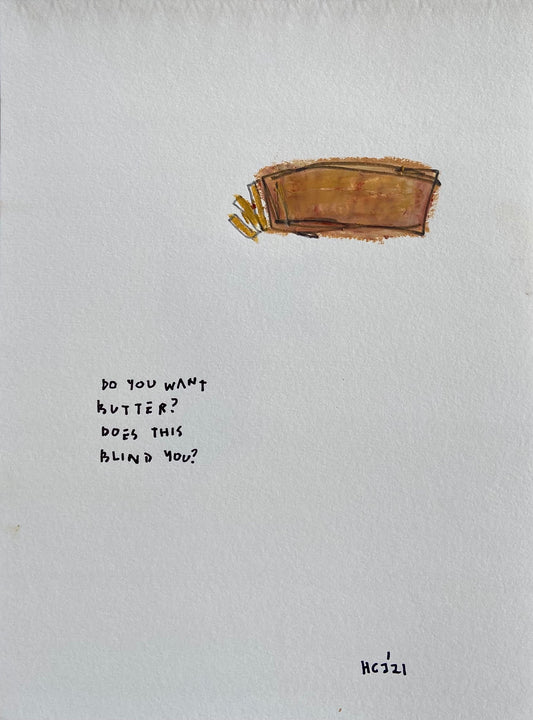 DO YOU WANT
BUTTER?
DOES THIS
BLIND YOU?
HCJ'21